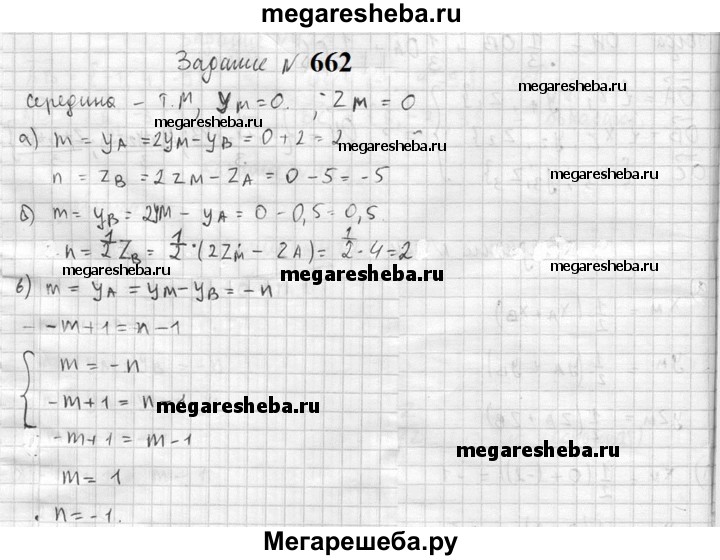 megaresheba.ru
Задание № 662
megaresheba.ru
середина – т. М, yм = 0. ; zм = 0
megaresheba.ru
а) m = yA = 2yм – yB = 0 + 2 = 2
megaresheba.ru
n = zB = 2zм – zA = 0 – 5 = –5
megaresheba.ru
б) m = yB = 2yм – yA = 0 – 0,5 = 0,5.
n = 1/2 zB = 1/2 · (2zм – zA) = 1/2 · 4 = 2
megaresheba.ru
megaresheba.ru
megaresheba.ru
в) m = yA = yм – yB = –n
– m + 1 = n – 1
{ m = –n
–m + 1 = n – 1
megaresheba.ru
–m + 1 = m – 1
megaresheba.ru
m = 1
n = –1.
Мегарешеба.ру